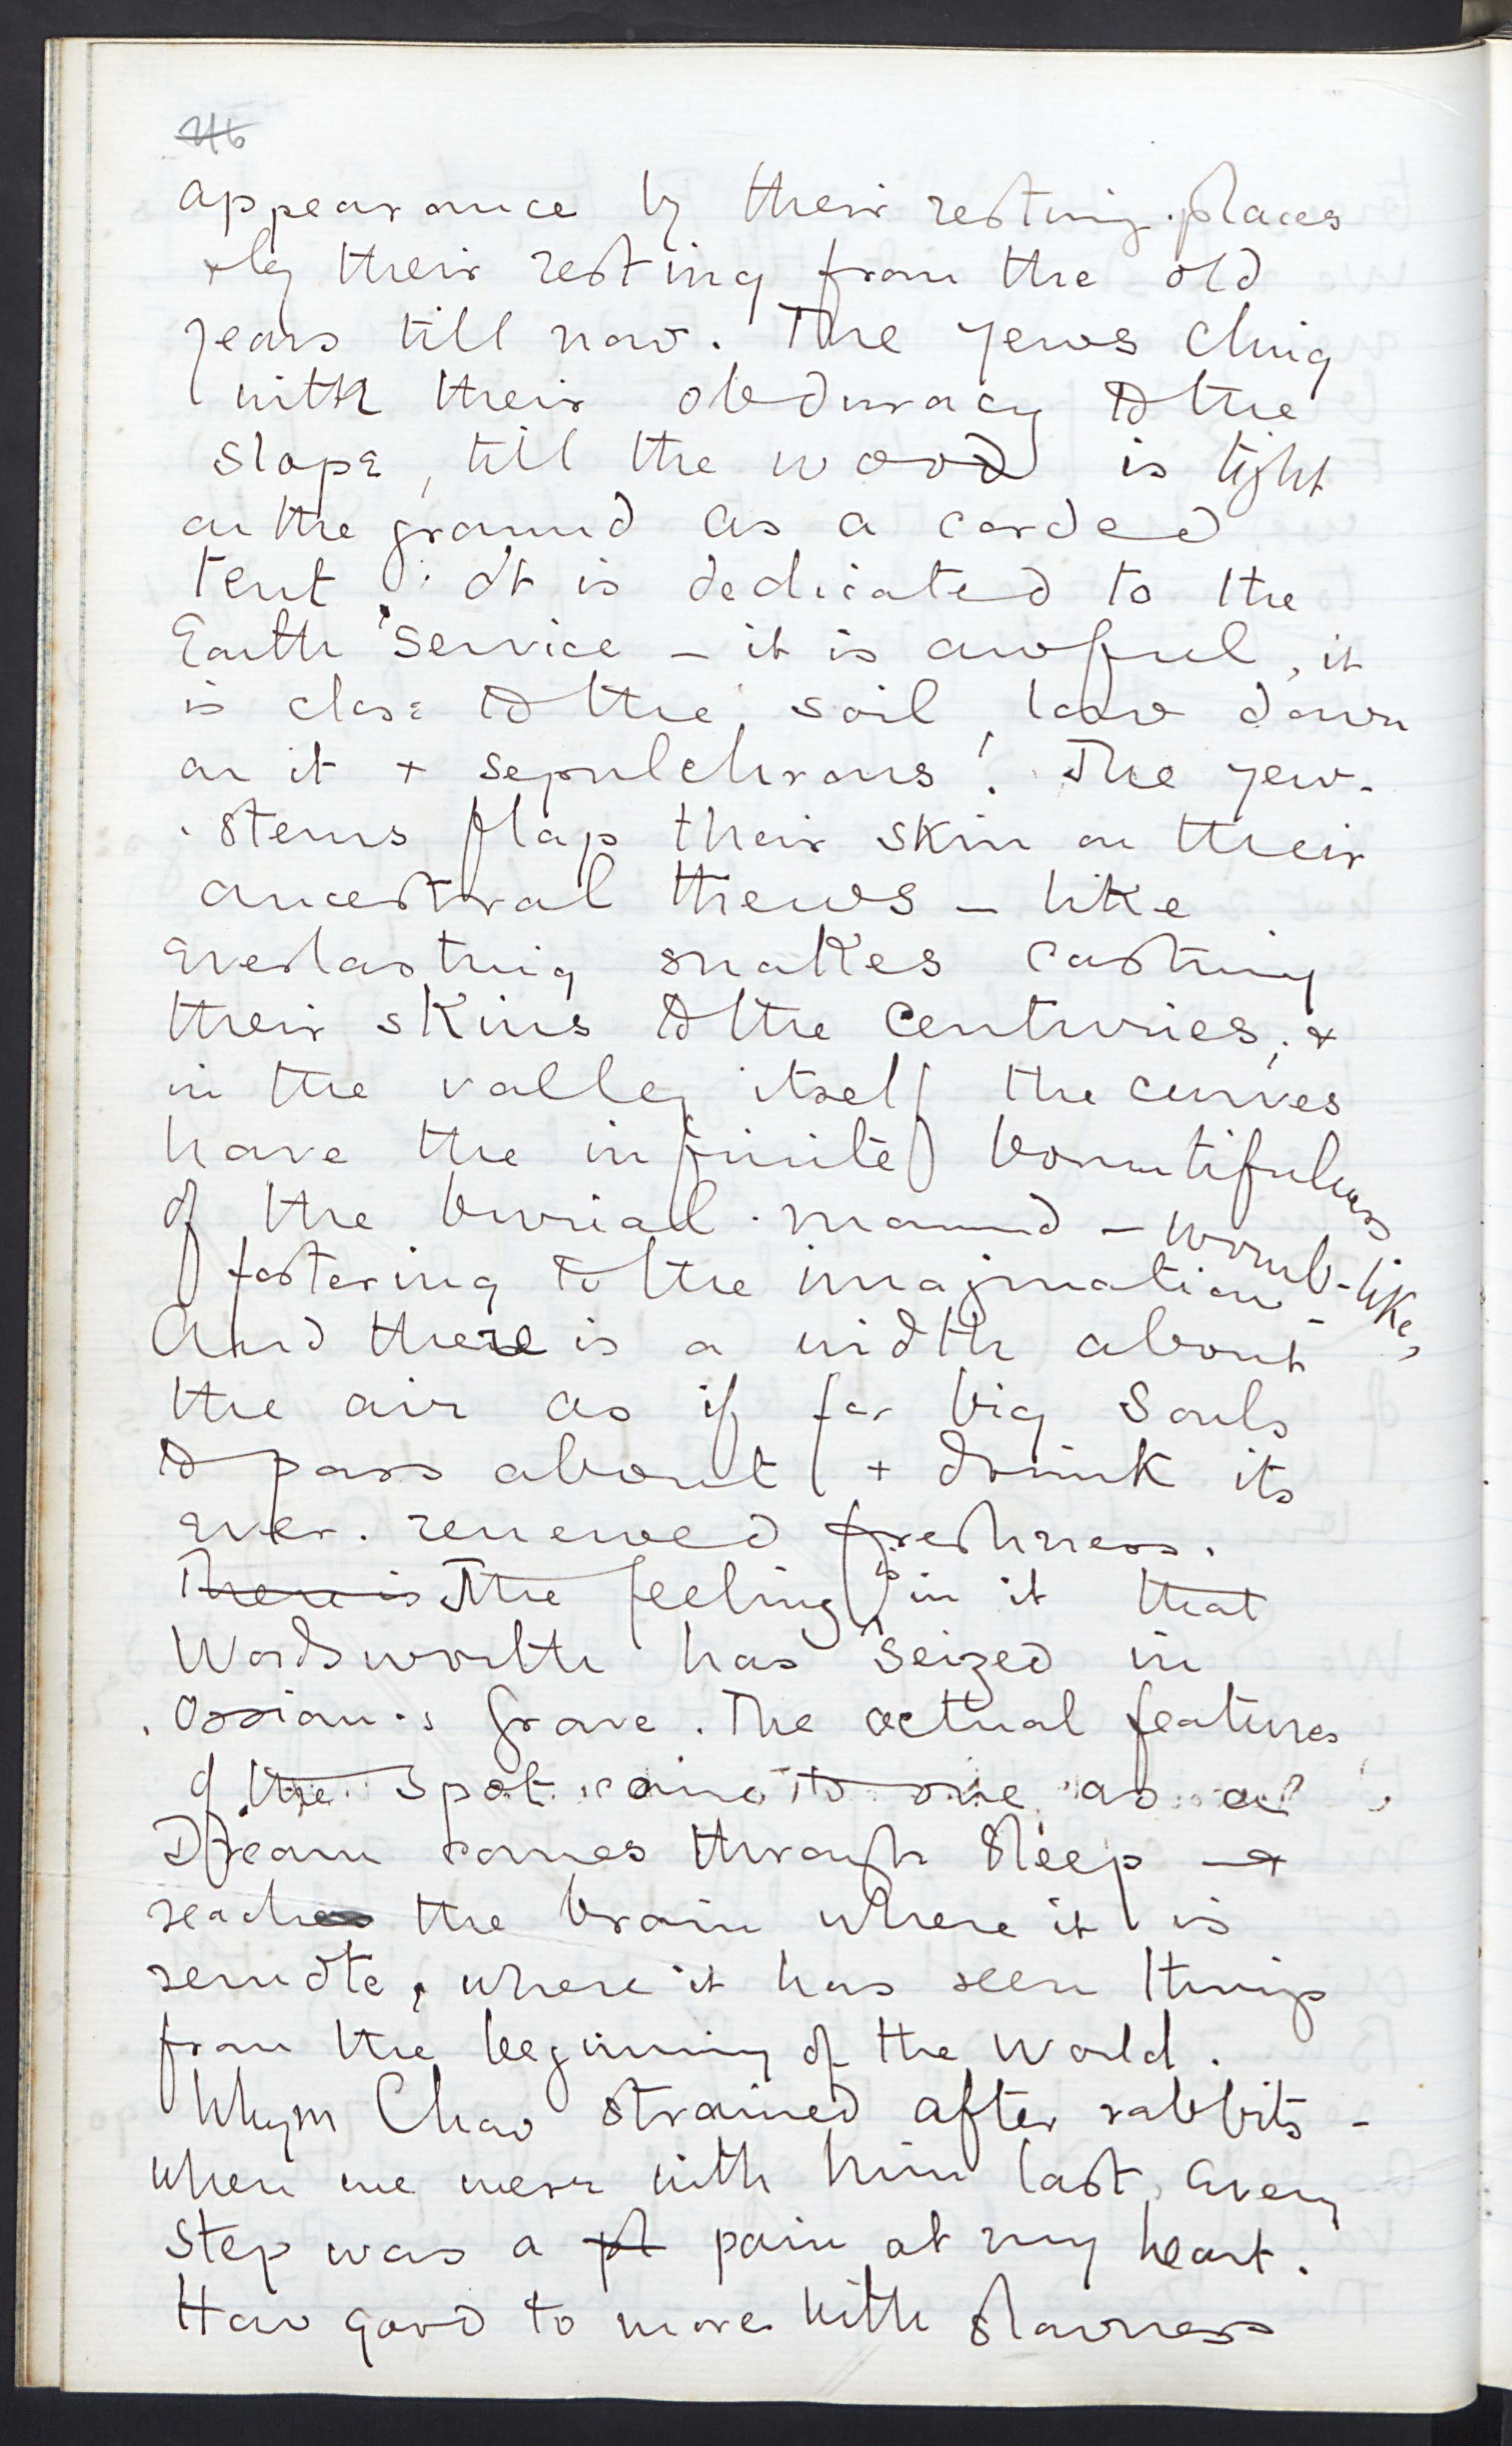 46
appearance by their resting-places
+ by their resting from the old
years till now. The yews cling
with their obduracy to the
slope, till the wood is tight
on the ground as a corded
tent. It is dedicated to the
Earth service – it is awful, it
is close to the soil, low down
on it + sepulchrous! The yew-
-stems flap their skin on their
ancestral thews – like
everlasting snakes casting
their skins to the centuries; &
in the valley itself the curves
have the infinite bountifulness
of the burial-mound – womb-like,
fostering to the imagination –
And there is a width about
the air as if for big Souls
to pass about + drink its
ever-renewed freshness.
There is The feeling is in it that
Wordsworth has seized in
Ossian's Grave. The actual features
of the spot come to one as a
Dream comes through Sleep – &
reaches the brain where it is
remote, where it has seen things
from the beginning of the world.
Whym Chow strained after rabbits –
when we were with him last, every
step was a pl pain at my heart.
How good to move with slowness